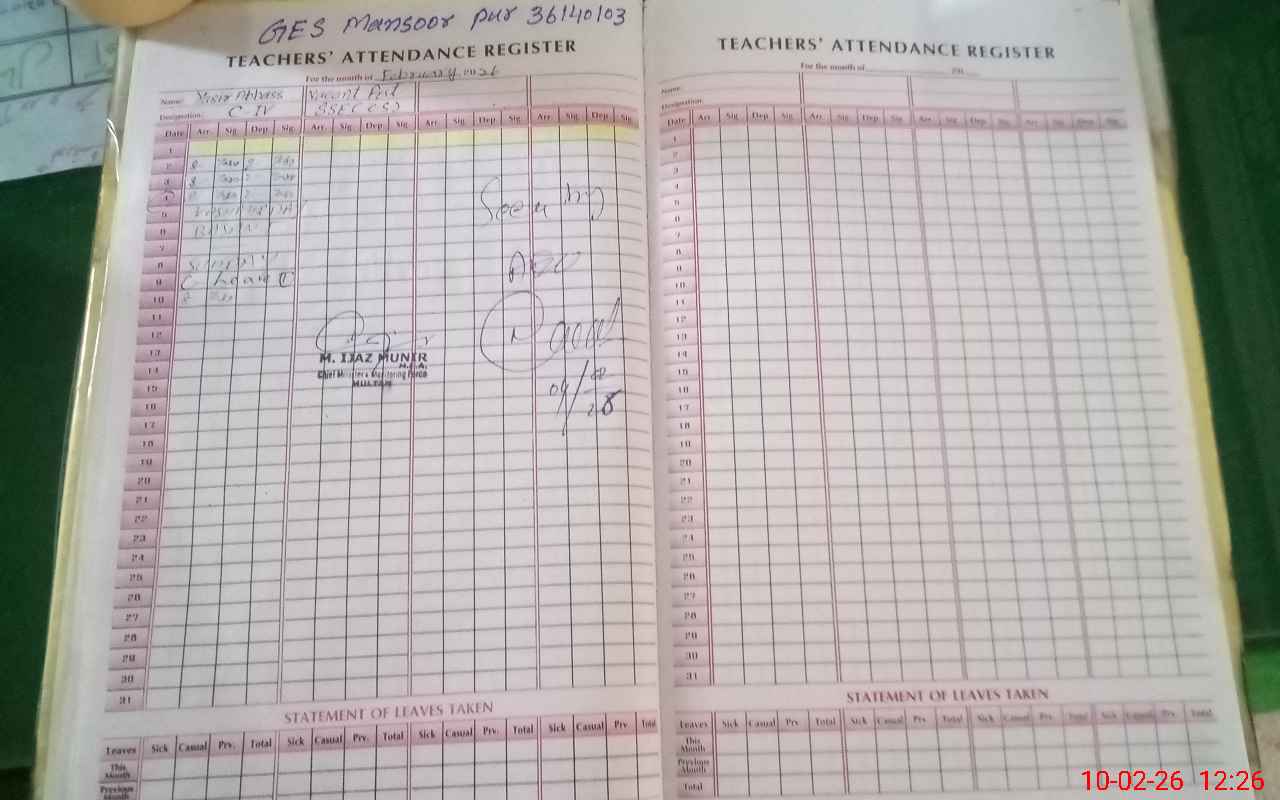 GES Mansoor pur 36140103
TEACHERS' ATTENDANCE REGISTER
For the month of February 2026
Name: Yasir Abbass Vacant Post
Designation: C-IV SSE (CS)
Date Arr. Sig. Dep. Sig. Arr. Sig. Dep. Sig. Arr. Sig. Dep. Sig. Arr. Sig. Dep. Sig.
1
2
3
4
5
6
7
8 Sunday
9 C. leave
10
11
12
13
14
15
16
17
18
19
20
21
22
23
24
25
26
27
28
29
30
31
Seen by
AEO
M. IJAZ MUNIR
M.E.A.
Chief Minister's Monitoring Force
MULTAN
STATEMENT OF LEAVES TAKEN
Leaves Sick Casual Prv. Total Sick Casual Prv. Total Sick Casual Prv. Total Sick Casual Prv. Total
This Month
Previous Month
TEACHERS' ATTENDANCE REGISTER
For the month of 20
Name:
Designation:
Date Arr. Sig. Dep. Sig. Arr. Sig. Dep. Sig. Arr. Sig. Dep. Sig. Arr. Sig. Dep. Sig.
1
2
3
4
5
6
7
8
9
10
11
12
13
14
15
16
17
18
19
20
21
22
23
24
25
26
27
28
29
30
31
STATEMENT OF LEAVES TAKEN
Leaves Sick Casual Prv. Total Sick Casual Prv. Total Sick Casual Prv. Total Sick Casual Prv. Total
This Month
Previous Month
Total
10-02-26 12:26